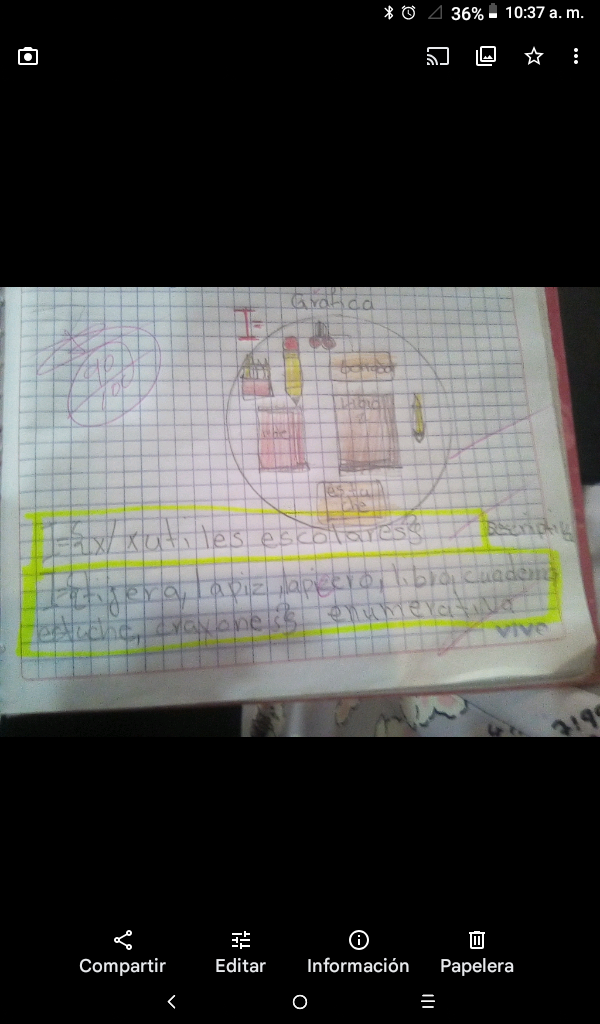 36% 10:37 a. m.
Gráfica
I=
90
100
borrador
libro
estu
che
I={x/x útiles escolares} Descriptiva
I={tijera, lapiz, lapicero, libro, cuaderno,
estuche, crayones} enumerativa
vivo
Compartir Editar Información Papelera